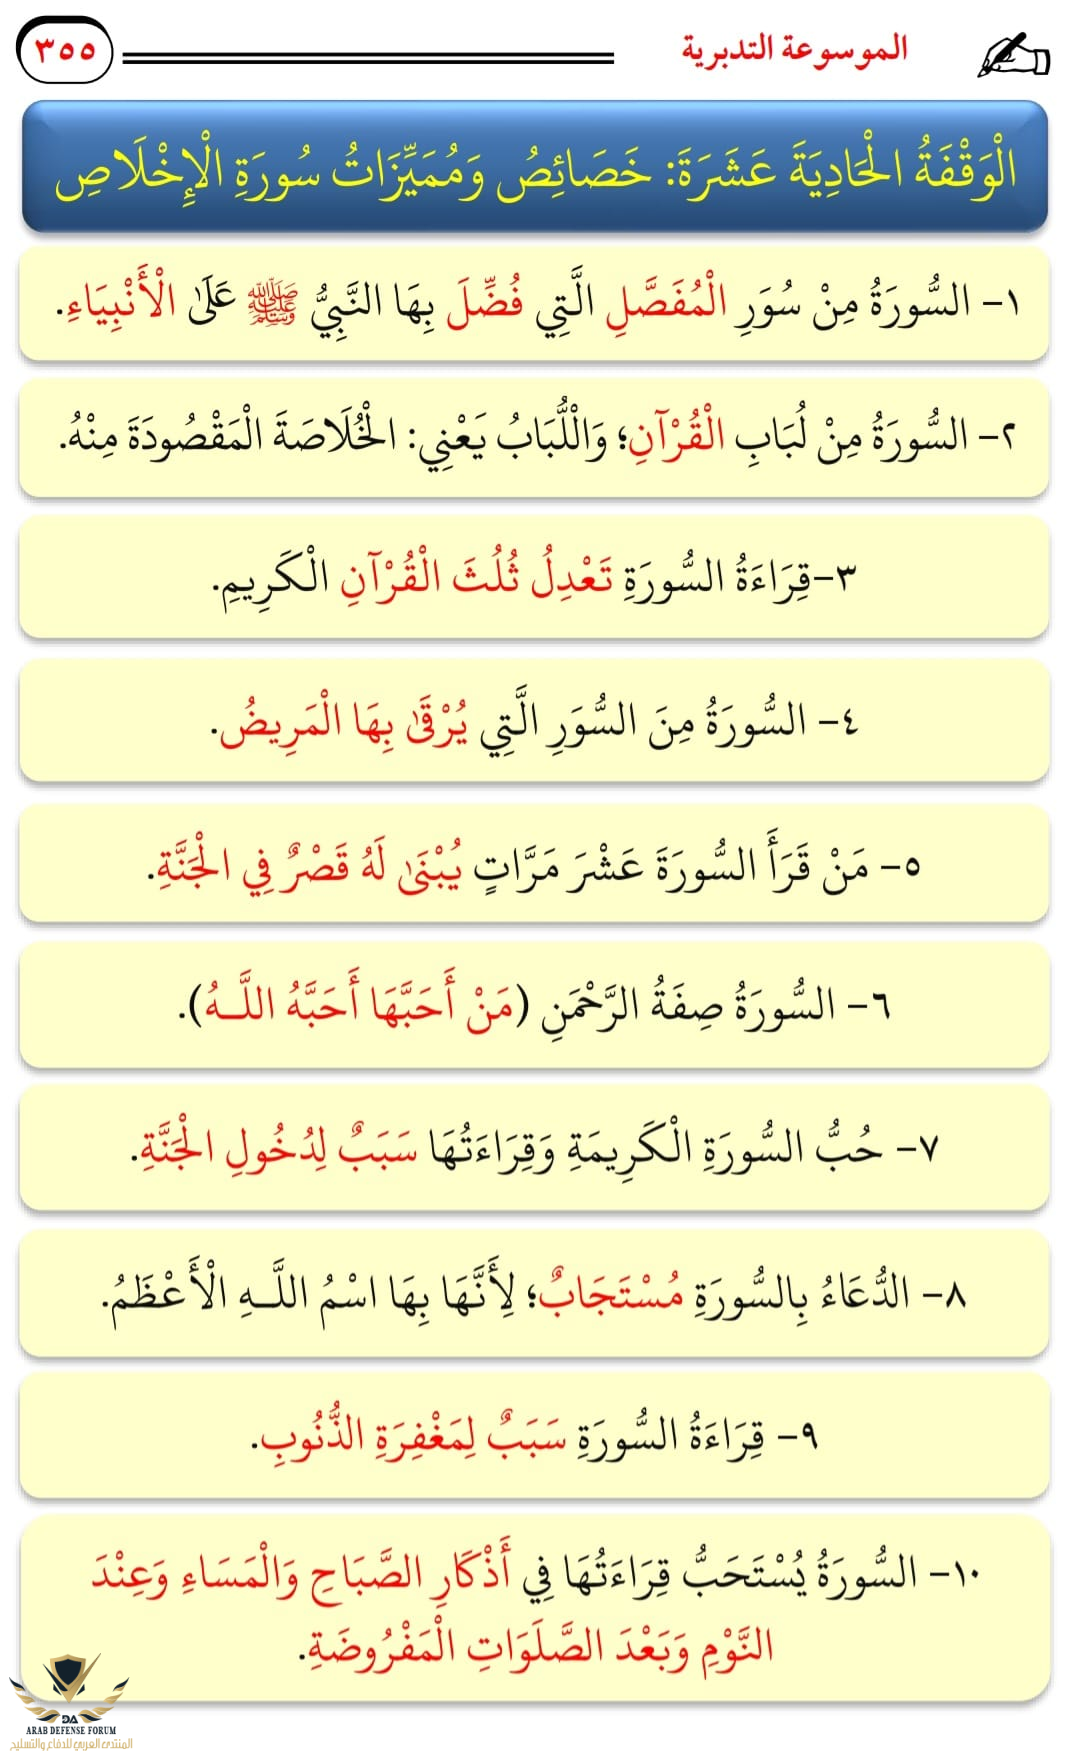 الموسوعة التدبرية
٣٥٥
الْوَقْفَةُ الْحَادِيَةَ عَشَرَةَ: خَصَائِصُ وَمُمَيِّزَاتُ سُورَةِ الْإِخْلَاصِ
١- السُّورَةُ مِنْ سُوَرِ الْمُفَصَّلِ الَّتِي فُضِّلَ بِهَا النَّبِيُّ ﷺ عَلَى الْأَنْبِيَاءِ.
٢- السُّورَةُ مِنْ لُبَابِ الْقُرْآنِ؛ وَاللُّبَابُ يَعْنِي: الْخُلَاصَةَ الْمَقْصُودَةَ مِنْهُ.
٣-قِرَاءَةُ السُّورَةِ تَعْدِلُ ثُلُثَ الْقُرْآنِ الْكَرِيمِ.
٤- السُّورَةُ مِنَ السُّوَرِ الَّتِي يُرْقَى بِهَا الْمَرِيضُ.
٥- مَنْ قَرَأَ السُّورَةَ عَشْرَ مَرَّاتٍ يُبْنَى لَهُ قَصْرٌ فِي الْجَنَّةِ.
٦- السُّورَةُ صِفَةُ الرَّحْمَنِ (مَنْ أَحَبَّهَا أَحَبَّهُ اللَّـهُ).
٧- حُبُّ السُّورَةِ الْكَرِيمَةِ وَقِرَاءَتُهَا سَبَبٌ لِدُخُولِ الْجَنَّةِ.
٨- الدُّعَاءُ بِالسُّورَةِ مُسْتَجَابٌ؛ لِأَنَّهَا بِهَا اسْمُ اللَّـهِ الْأَعْظَمُ.
٩- قِرَاءَةُ السُّورَةِ سَبَبٌ لِمَغْفِرَةِ الذُّنُوبِ.
١٠- السُّورَةُ يُسْتَحَبُّ قِرَاءَتُهَا فِي أَذْكَارِ الصَّبَاحِ وَالْمَسَاءِ وَعِنْدَ
النَّوْمِ وَبَعْدَ الصَّلَوَاتِ الْمَفْرُوضَةِ.
DA
ARAB DEFENSE FORUM
المنتدى العربي للدفاع والتسليح